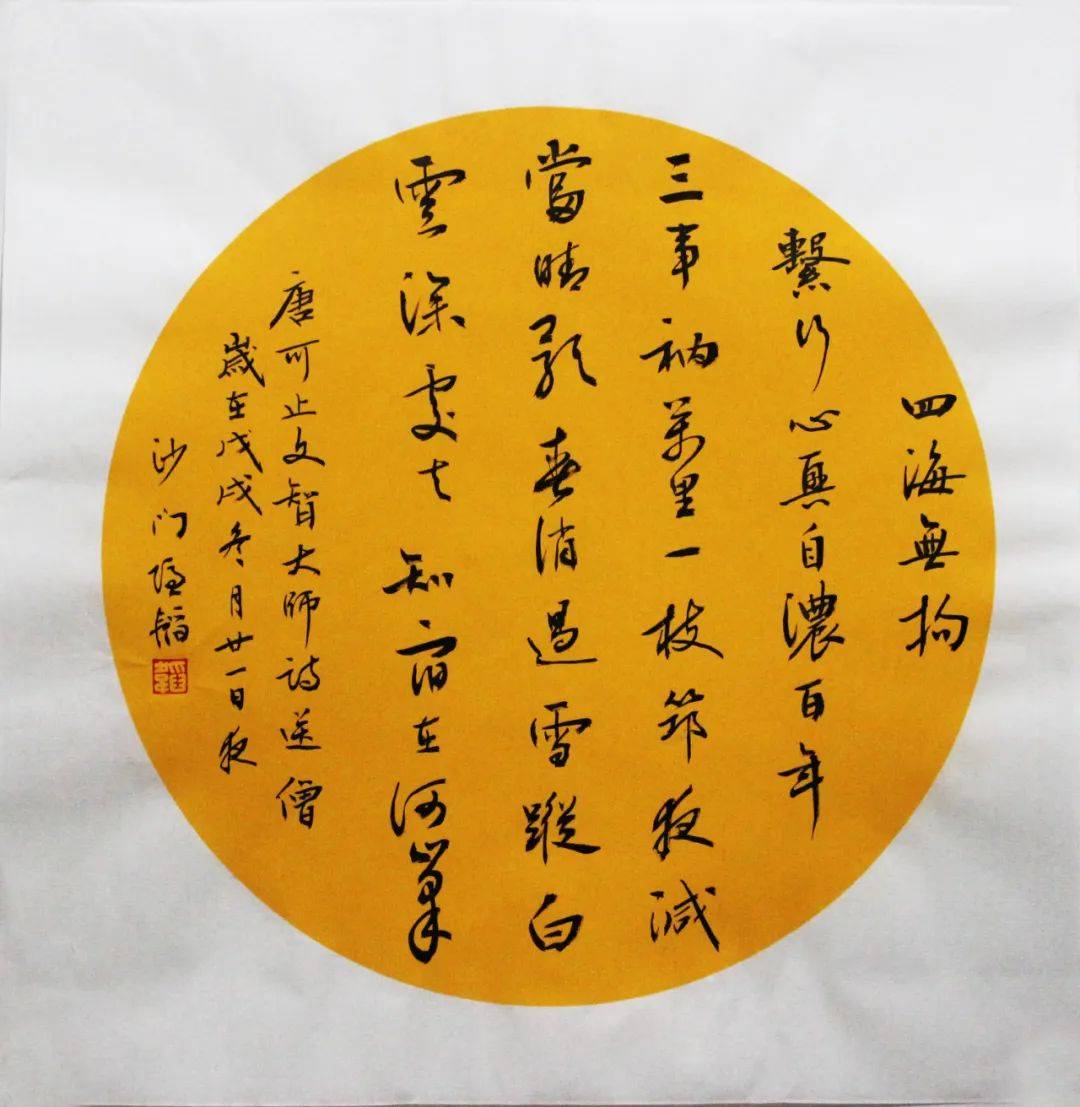 四海無拘
繫行心興自濃百年
三事衲萬里一枝筇夜減
當晴影春消過雪蹤白
雲深處去知宿在何峯
唐可止文智大師詩送僧
歲在戊戌冬月廿一日夜
沙门隱韜